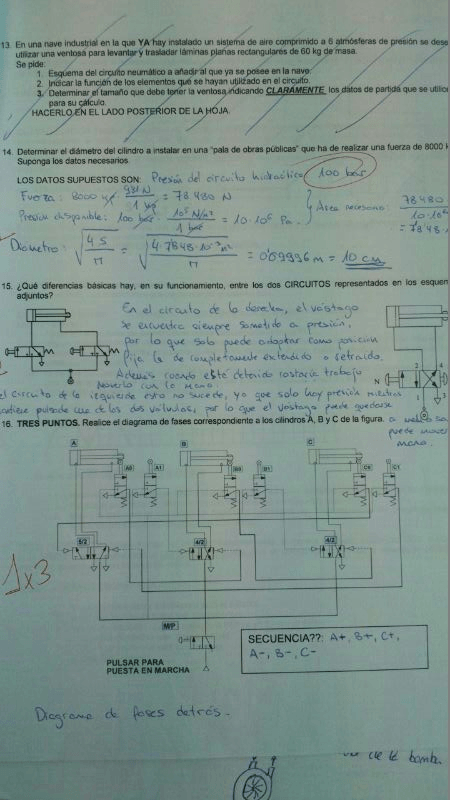 13. En una nave industrial en la que YA hay instalado un sistema de aire comprimido a 6 atmósferas de presión se dese
utilizar una ventosa para levantar y trasladar láminas planas rectangulares de 60 kg de masa.
Se pide:
1. Esquema del circuito neumático a añadir al que ya se posee en la nave.
2. Indicar la función de los elementos que se hayan utilizado en el circuito.
3. Determinar el tamaño que debe tener la ventosa indicando CLARAMENTE los datos de partida que se utilic
para su cálculo.
HACERLO EN EL LADO POSTERIOR DE LA HOJA.
14. Determinar el diámetro del cilindro a instalar en una "pala de obras públicas" que ha de realizar una fuerza de 8000 k
Suponga los datos necesarios.
LOS DATOS SUPUESTOS SON: Presión del circuito hidráulico: 100 bar
Fuerza: 8000 kg · 9'81 N / 1 kg = 78.480 N
Presión disponible: 100 bar · 10⁵ N/m² / 1 bar = 10·10⁶ Pa.
Área necesaria: 78480 / 10·10⁶
= 7'848·
Diámetro: √(4S/π) = √(4·7'848·10⁻³m²/π) = 0'09996m = 10 cm
15. ¿Qué diferencias básicas hay, en su funcionamiento, entre los dos CIRCUITOS representados en los esquem
adjuntos?
En el circuito de la derecha, el vástago
se encuentra siempre sometido a presión,
por lo que solo puede adoptar como posición
fija la de completamente extendido o retraído.
Además cuando esté detenido costaría trabajo
moverlo con la mano.
el circuito de la izquierda esto no sucede, ya que solo hay presión mientras
mantiene pulsada una de las dos válvulas, por lo que el vástago puede quedarse
a
puede mover
mano.
N
2 4
1 3
16. TRES PUNTOS. Realice el diagrama de fases correspondiente a los cilindros A, B y C de la figura.
A B C
A0 A1 B0 B1 C0 C1
5/2 4/2 4/2
1x3
M/P
PULSAR PARA
PUESTA EN MARCHA
SECUENCIA??: A+, B+, C+,
A-, B-, C-
Diagrama de fases detrás.
de la bomba.